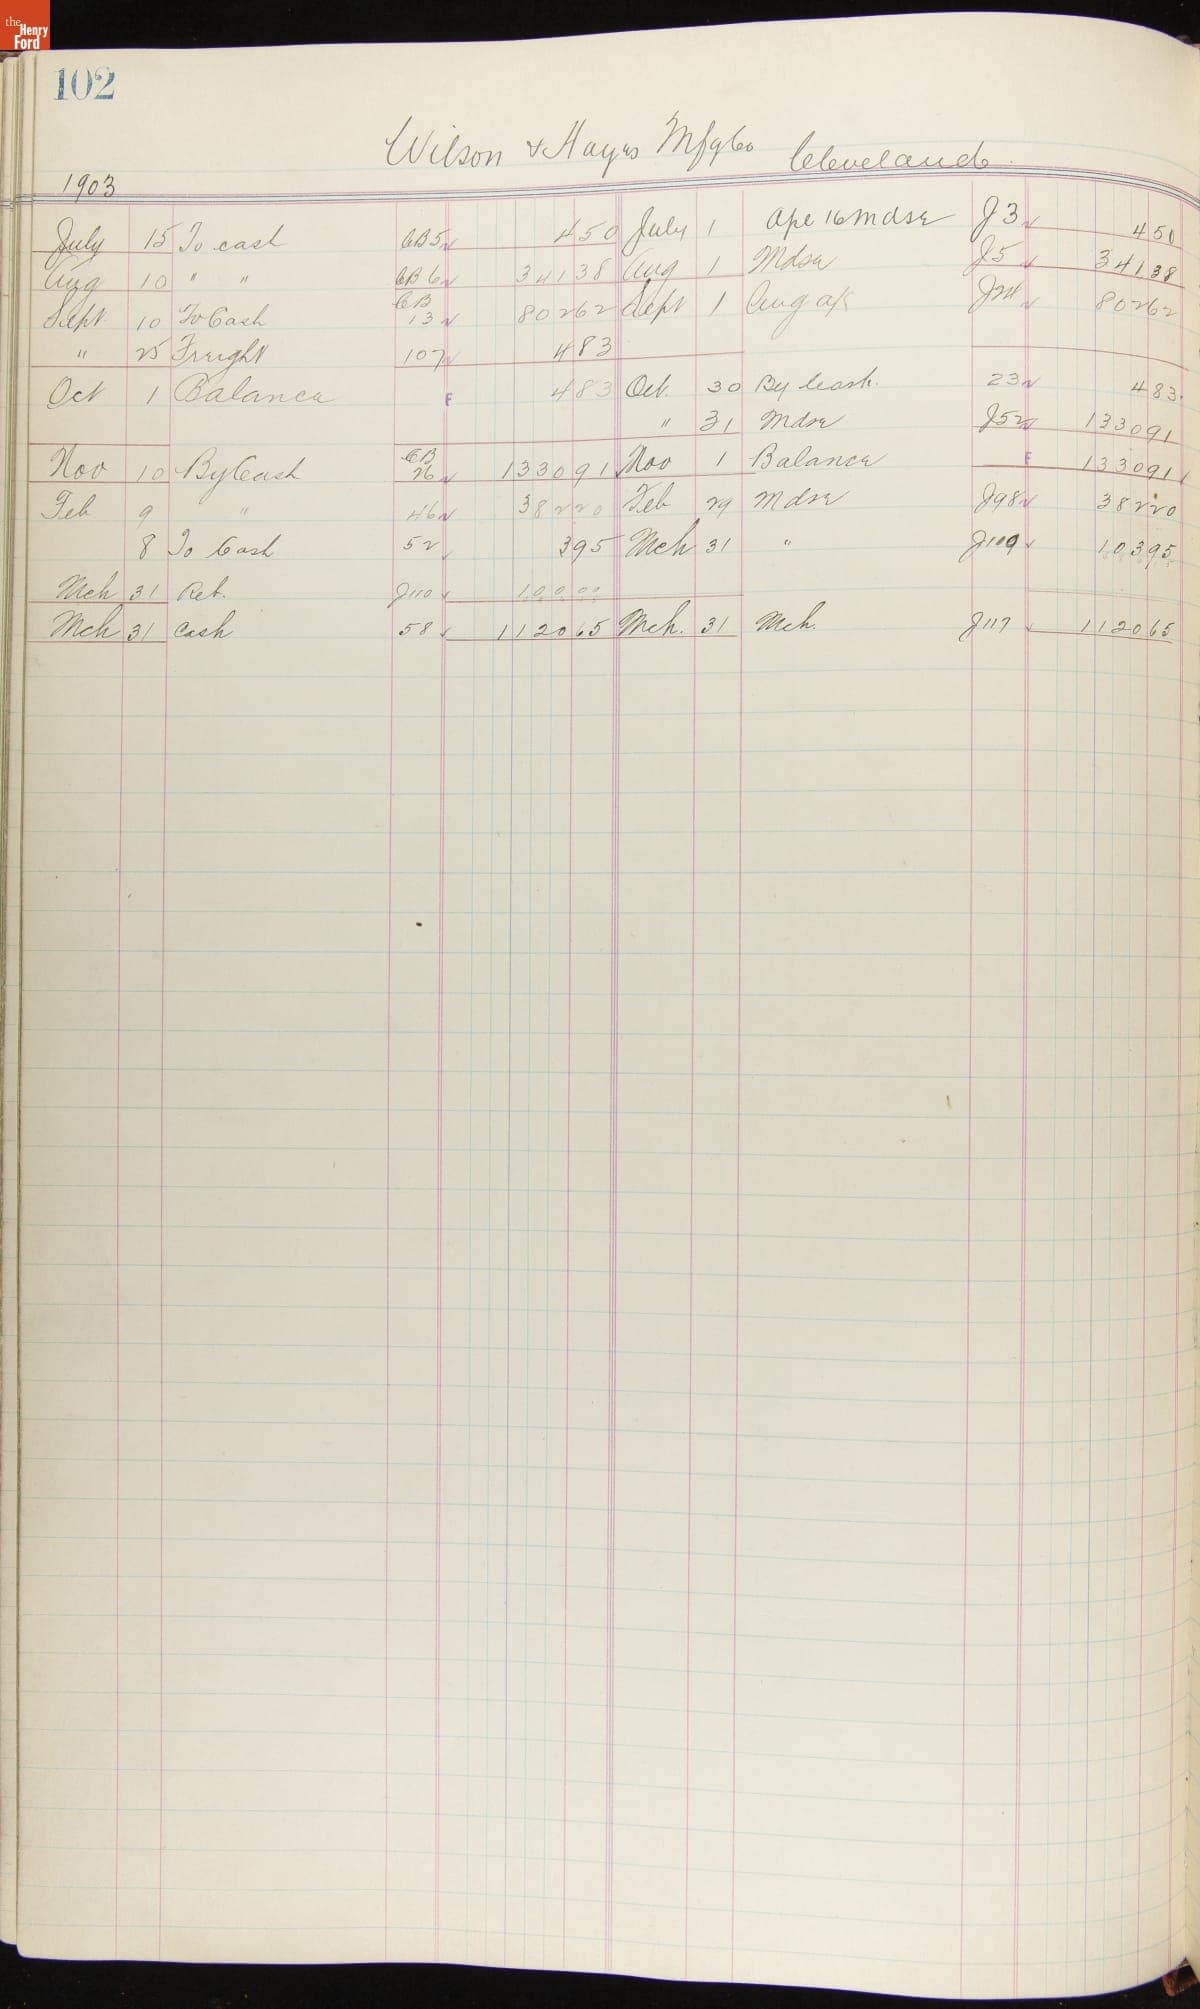 the Henry Ford
102
Wilson & Hayes Mfg Co Cleveland
1903
July 15 To cash CB5 450 July 1 Ape 16 Mdse J3 450
Aug 10 " " CB6 34138 Aug 1 Mdse J5 34138
Sept. 10 To Cash CB 13 80262 Sept 1 Aug a/c 80262
" 25 Freight 107 483
Oct 1 Balance F 483 Oct. 30 By Cash. 23 483
" 31 Mdse J52 133091
Nov 10 By Cash CB 26 133091 Nov 1 Balance F 133091
Feb 9 " 46 38220 Feb 29 Mdse J98 38220
8 To Cash 52 395 Mch 31 " J109 10395
Mch 31 Ret. J110 10000
Mch 31 Cash 58 112065 Mch. 31 Mch. J117 112065